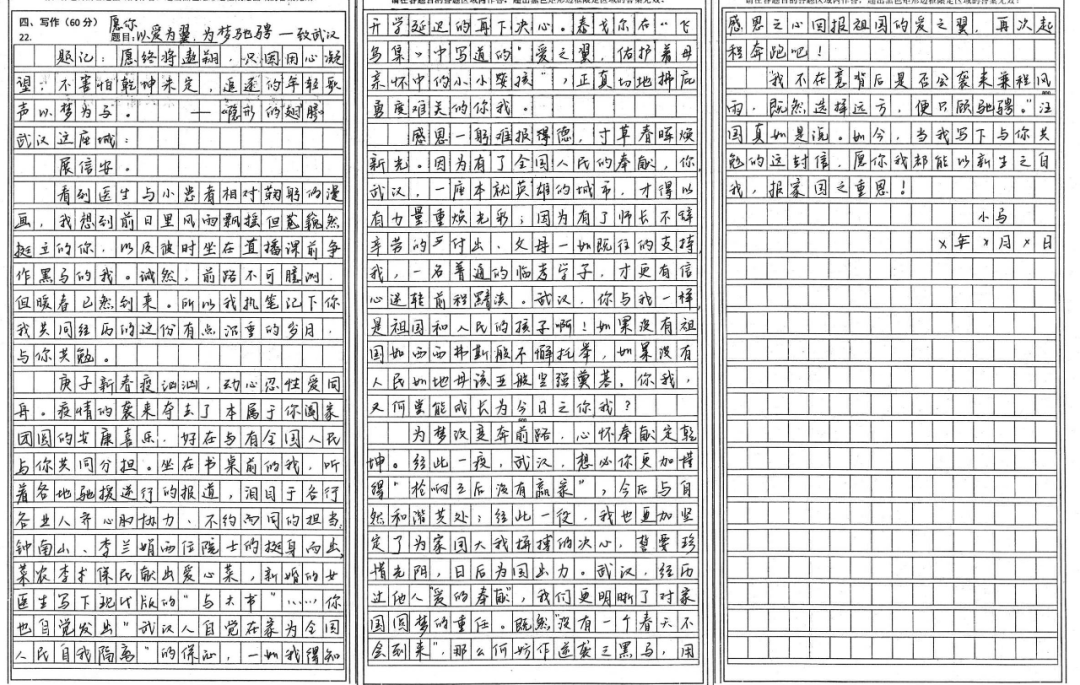 四、写作（60分）
22.
愿你
题目：以爱为翼，为梦驰骋 — 致武汉
题记：愿终将遨翔，只因用心凝
望；不害怕乾坤未定，遥远的年轻歌
声以梦为马。 ——《隐形的翅膀》
武汉这座城：
展信安。
看到医生与小患者相对鞠躬的漫
画，我想到前日里风雨飘摇但巍巍然
挺立的你，以及彼时坐在直播课前争
作黑马的我。诚然，前路不可臆测，
但暖春已然到来。所以我执笔记下你
我共同经历的这份有点沉重的岁月，
与你共勉。
庚子新春疫汹汹，动心忍性爱同
舟。疫情的袭来夺去了本属于你阖家
团圆的安康喜乐，好在与有全国人民
与你共同分担。坐在书桌前的我，听
着各地驰援逆行的报道，泪目于各行
各业人齐心协力、不约而同的担当，
钟南山、李兰娟两位院士的挺身而出，
菜农李才保民献出爱心菜，新婚的女
医生写下现代版的“与夫书”……你
也自觉发出“武汉人自觉在家为全国
人民自我隔离”的保证，一如我得知
开学延迟的再下决心。泰戈尔在《飞
鸟集》中写道的“爱之翼，佑护着母
亲怀中的小小婴孩”，正真切地拂庇
勇度难关的你我。
感恩一躬难报得德，寸草春晖焕
新光。因为有了全国人民的奉献，你
武汉，一座本就英雄的城市，才得以
有力量重焕光彩；因为有了师长不辞
辛苦的付出、父母一如既往的支持，
我，一名普通的临考学子，才更有信
心逆转前程黯淡。武汉，你与我一样
是祖国和人民的孩子啊！如果没有祖
国如西西弗斯般不懈托举，如果没有
人民如地母该亚般坚强奠基，你我，
又何尝能成长为今日之你我？
为梦汝变奔前路，心怀奉献定乾
坤。经此一疫，武汉，想必你更加懂
得“枪响之后没有赢家”，今后与自
然和谐共处；经此一役，我也更加坚
定了为家国大我拼搏的决心，誓要珍
惜光阴，日后为国出力。武汉，经历
过他人“爱的奉献”，我们更明晰了对家
国圆梦的重任。既然“没有一个春天不
会到来”，那么何妨作逆袭之黑马，用
感恩之心回报祖国的爱之翼，再次起
程奔跑吧！
“我不在意背后是否会袭来兼程风
雨，既然选择远方，便只顾驰骋。”汪
国真如是说。如今，当我写下与你共
勉的这封信，愿你我都能以新生之自
我，报家国之重恩！
小马
×年×月×日